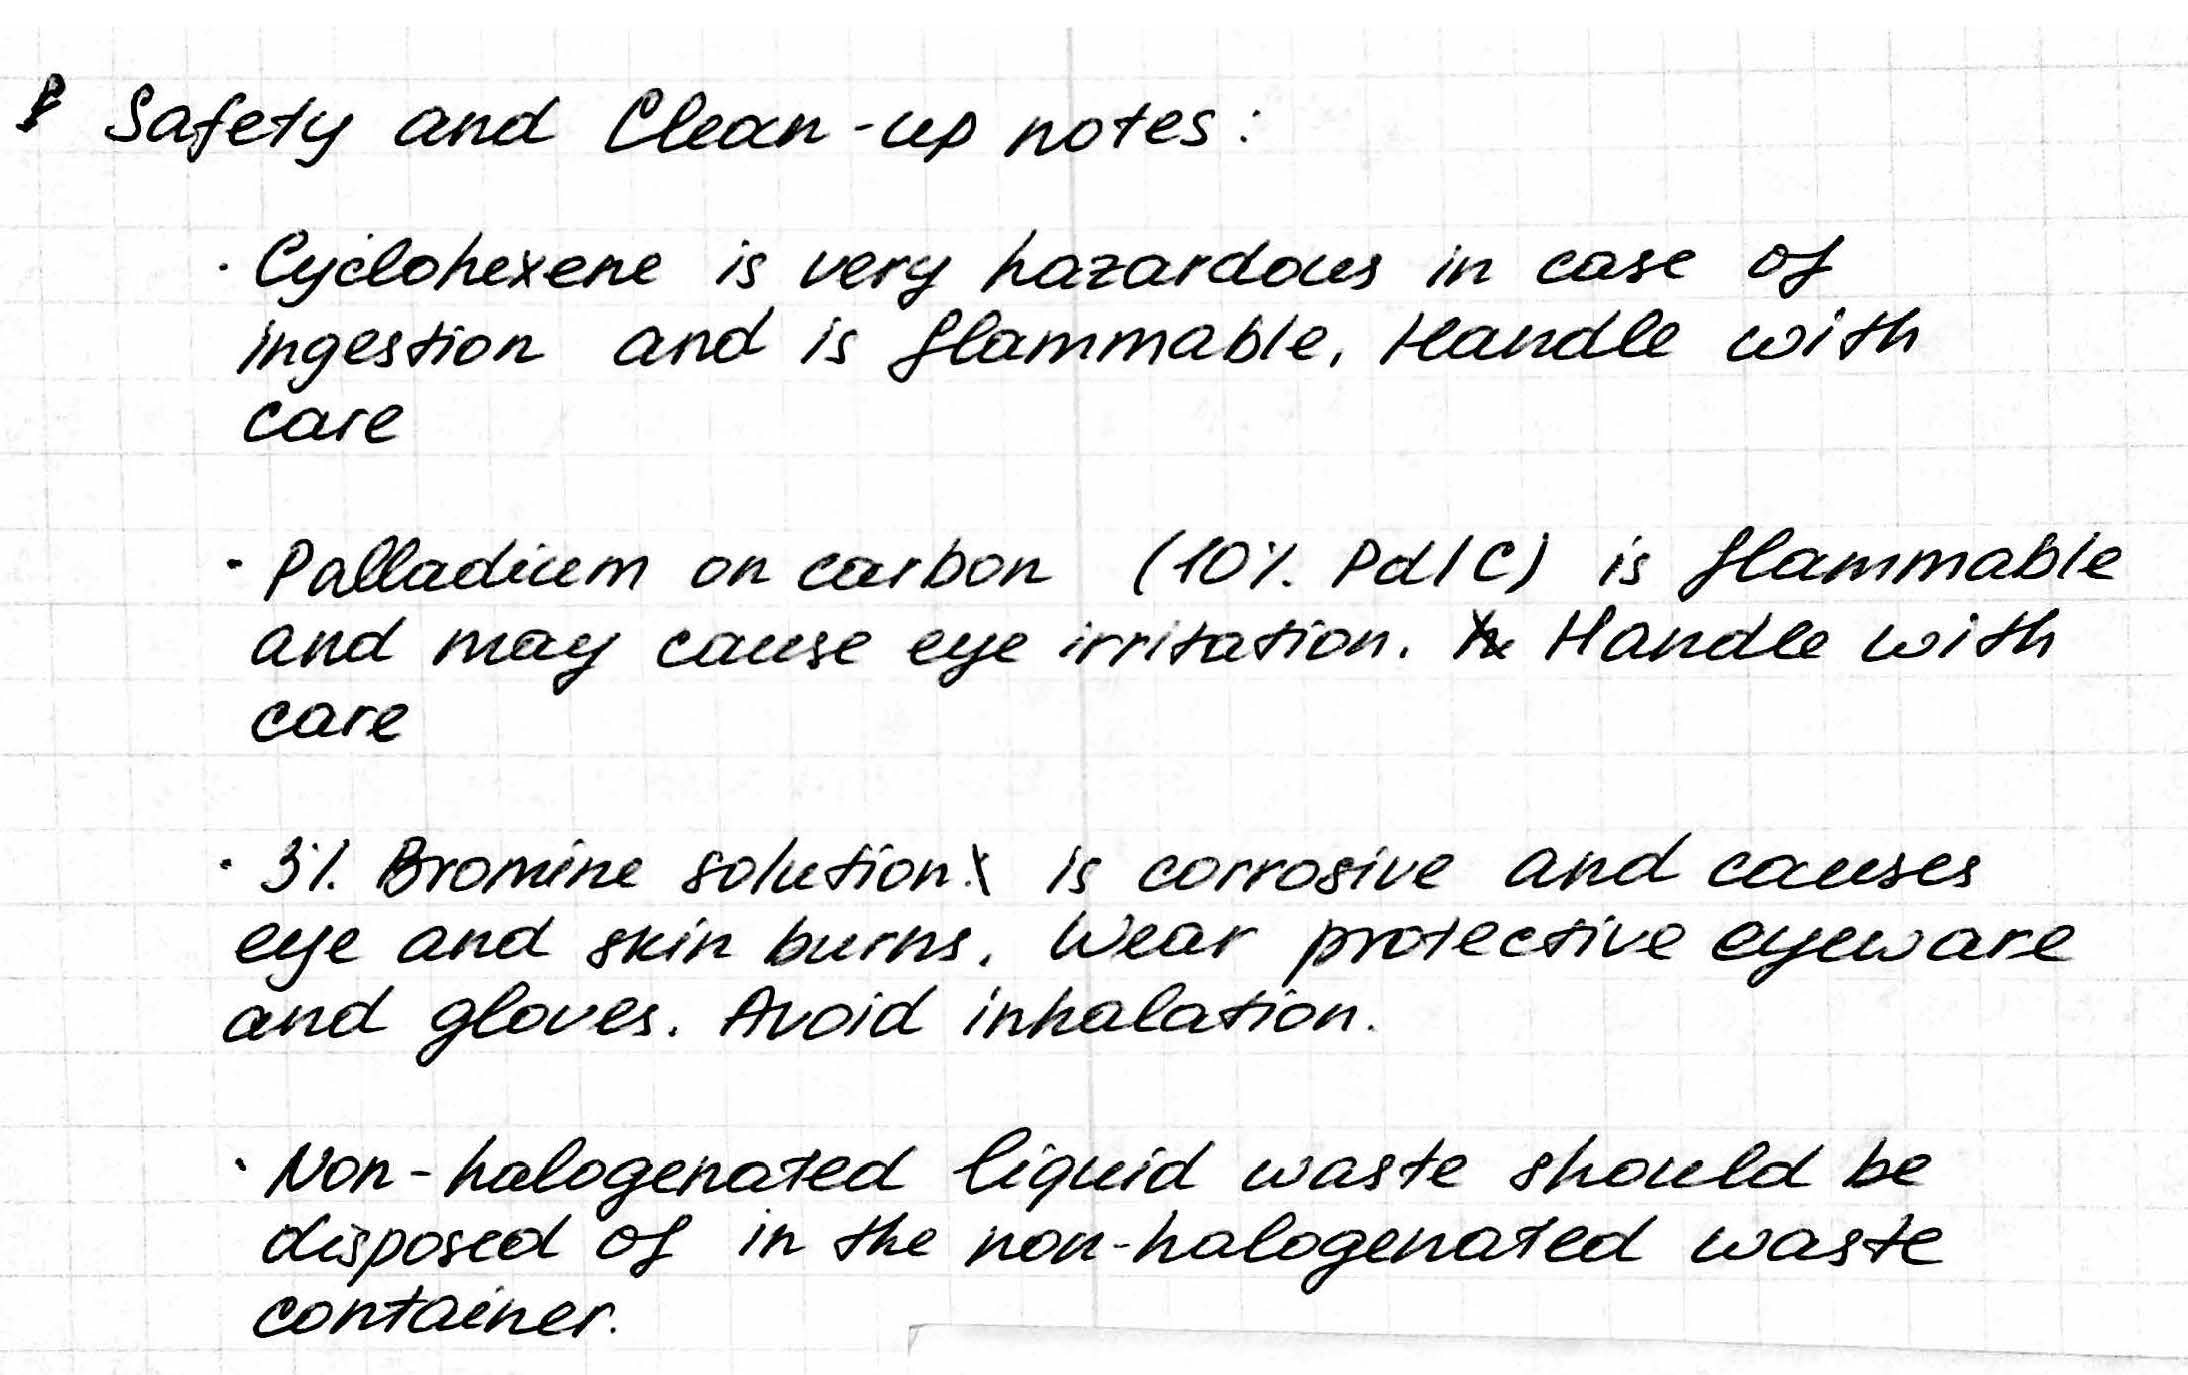 Safety and Clean-up notes:
· Cyclohexene is very hazardous in case of
ingestion and is flammable, Handle with
care
- Palladium on carbon (10% Pd/C) is flammable
and may cause eye irritation. Handle with
care
· 3%. Bromine solution is corrosive and causes
eye and skin burns. Wear protective eyeware
and gloves. Avoid inhalation.
· Non-halogenated liquid waste should be
disposed of in the non-halogenated waste
container.